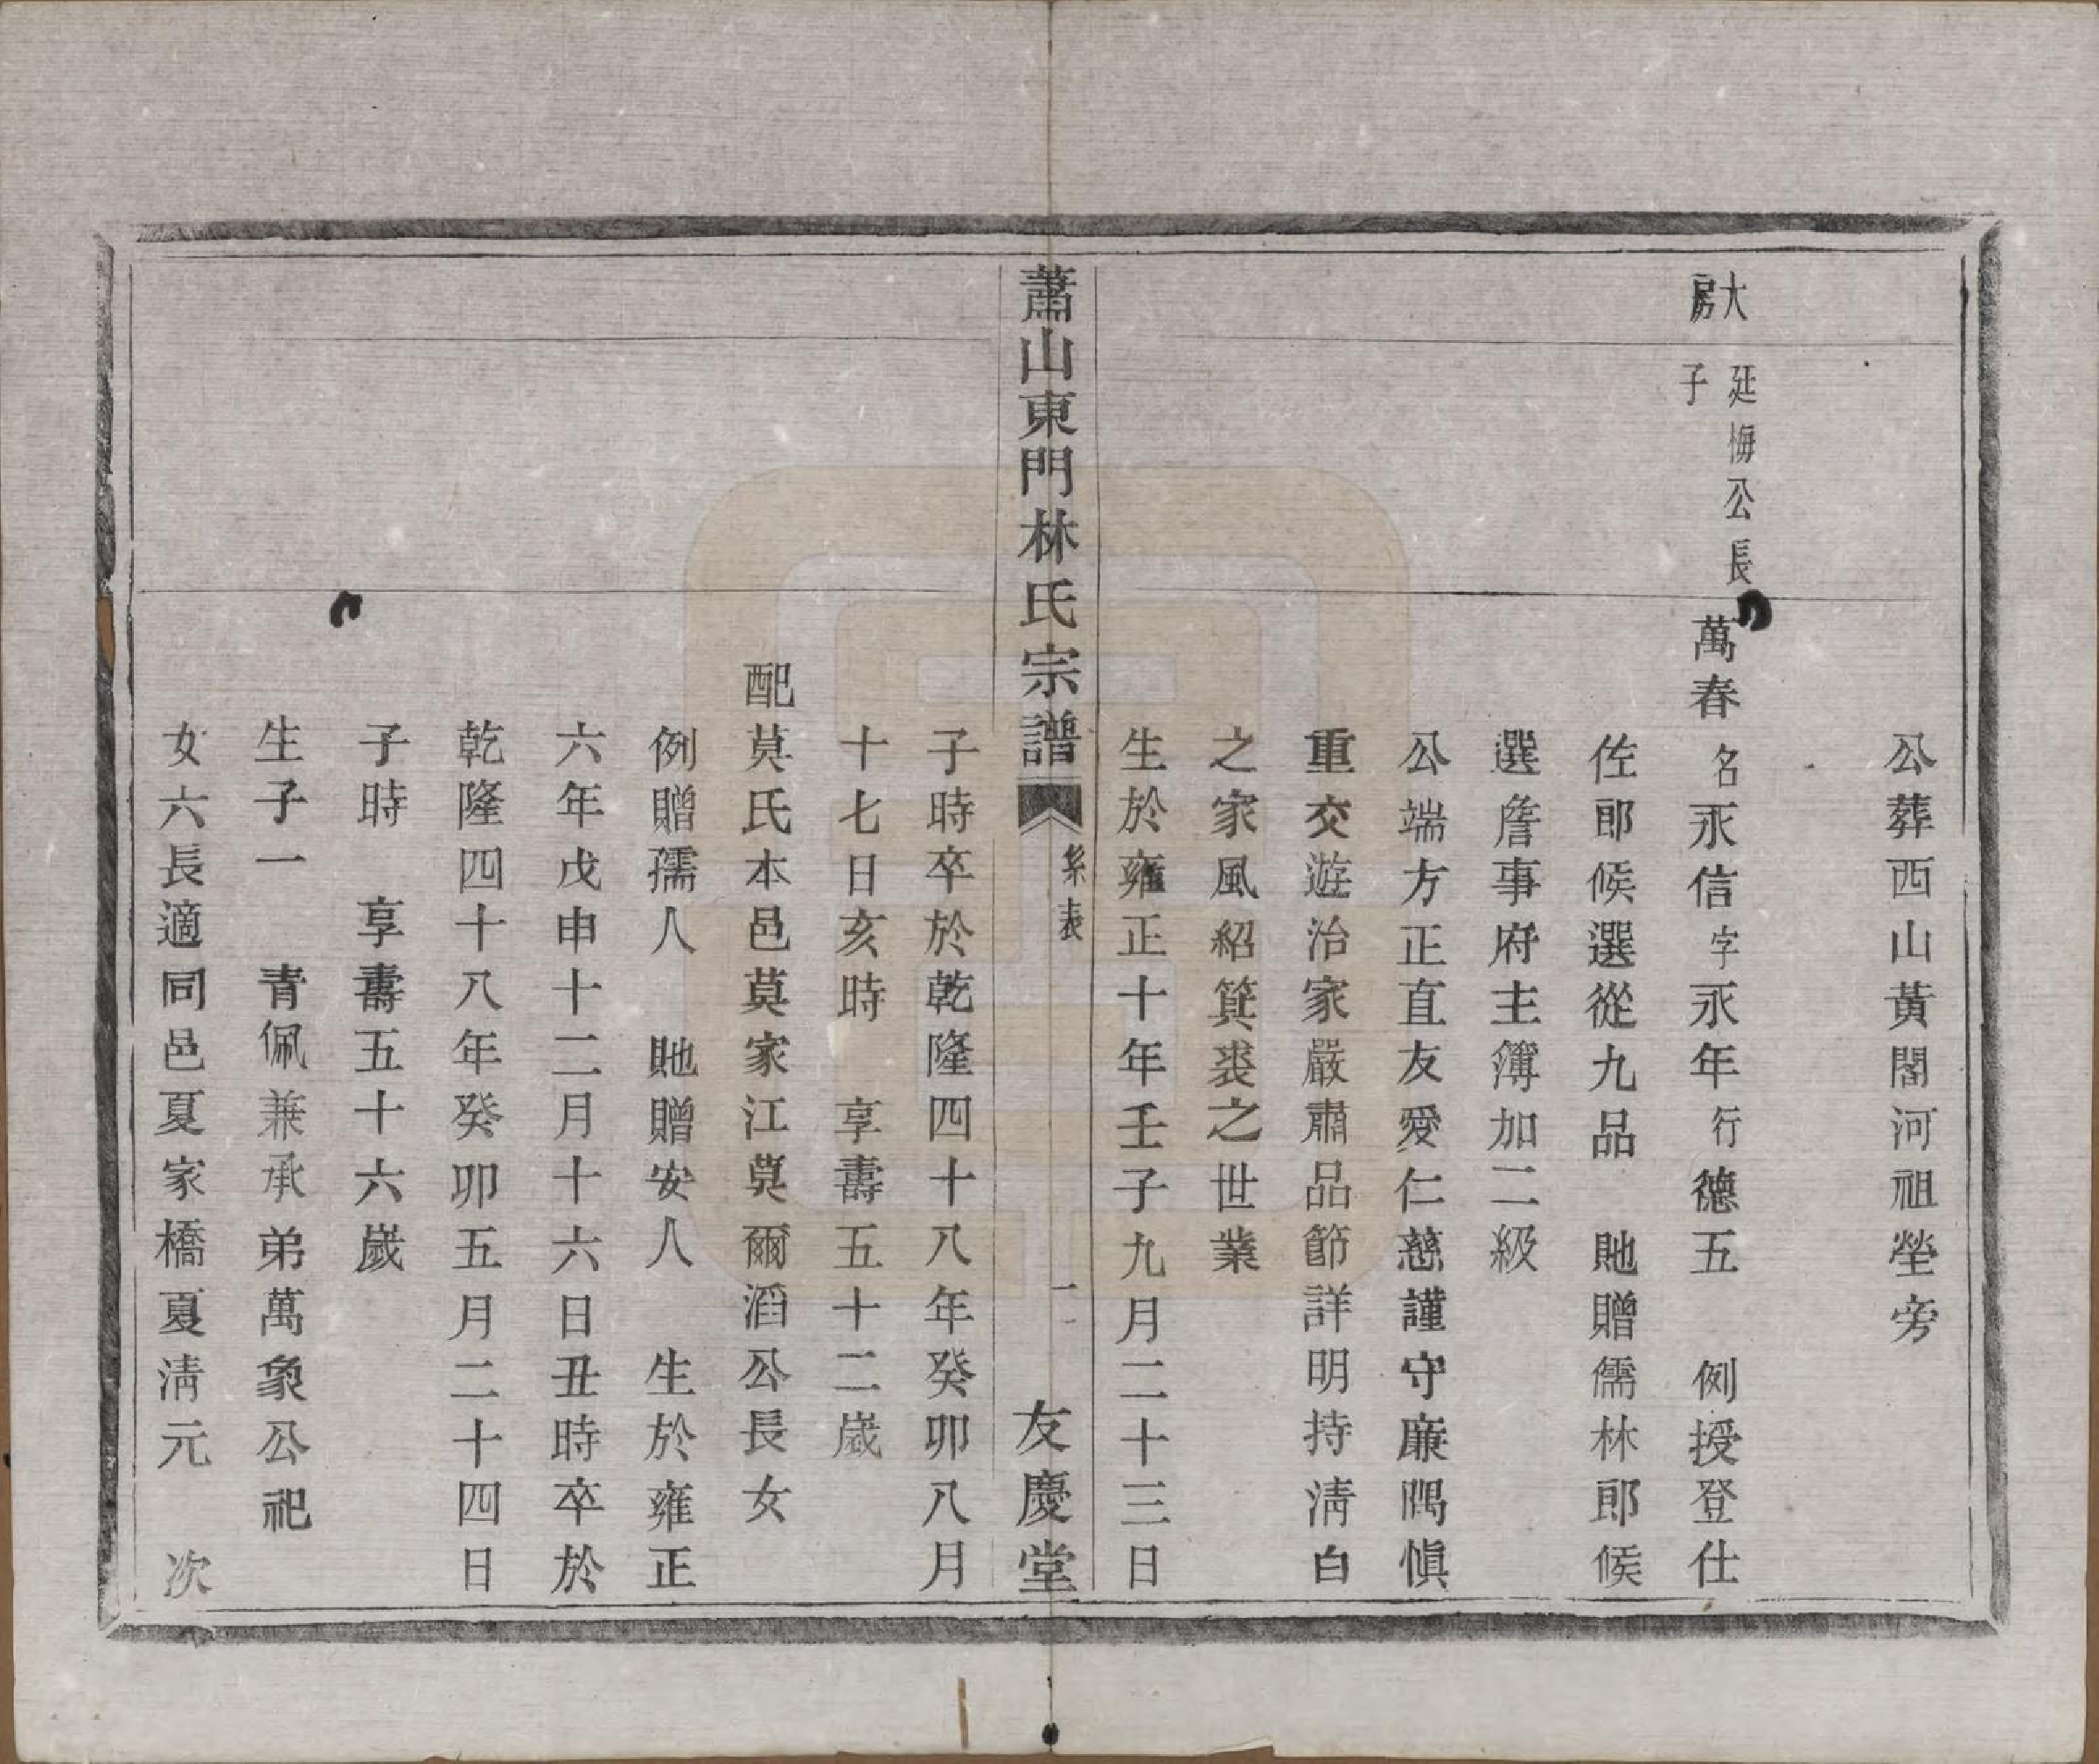 公葬西山黃閣河祖塋旁
大房
延悔公長子
萬春 名永信字永年行德五 例授登仕
佐郎候選從九品 貤贈儒林郎候
選詹事府主簿加二級
公端方正直友愛仁慈謹守廉隅愼
重交遊治家嚴肅品節詳明持淸白
之家風紹箕裘之世業
生於雍正十年壬子九月二十三日
蕭山東門林氏宗譜 系表 二 友慶堂
子時卒於乾隆四十八年癸卯八月
十七日亥時 享壽五十二歲
配莫氏本邑莫家江莫爾滔公長女
例贈孺人 貤贈安人 生於雍正
六年戊申十二月十六日丑時卒於
乾隆四十八年癸卯五月二十四日
子時 享壽五十六歲
生子一 青佩兼承弟萬象公祀
女六長適同邑夏家橋夏淸元 次